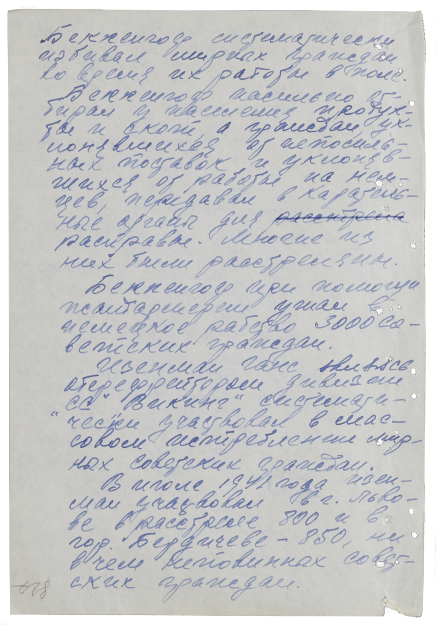 Беккенгоф систематически
избивал мирных граждан
во время их работы в поле.
Беккенгоф насильно от-
бирал у населения продук-
ты и скот, а граждан, ук-
лонявшихся от непосиль-
ных поставок и уклоняв-
шихся от работы на нем-
цев, передавал в каратель-
ные органы для расстрела
расправы. Многие из
них были расстреляны.
Беккенгоф при помощи
жандармерии угнал в
немецкое рабство 3000 со-
ветских граждан.
Изенман Ганс являясь
обершреттером дивизии
СС "Викинг" системати-
чески участвовал в мас-
совом истреблении мир-
ных советских граждан.
В июле 1941 года Изен-
ман участвовал в г. Льво-
ве в расстреле 800 и в
гор. Бердичеве - 850, ни
в чем неповинных совет-
ских граждан.